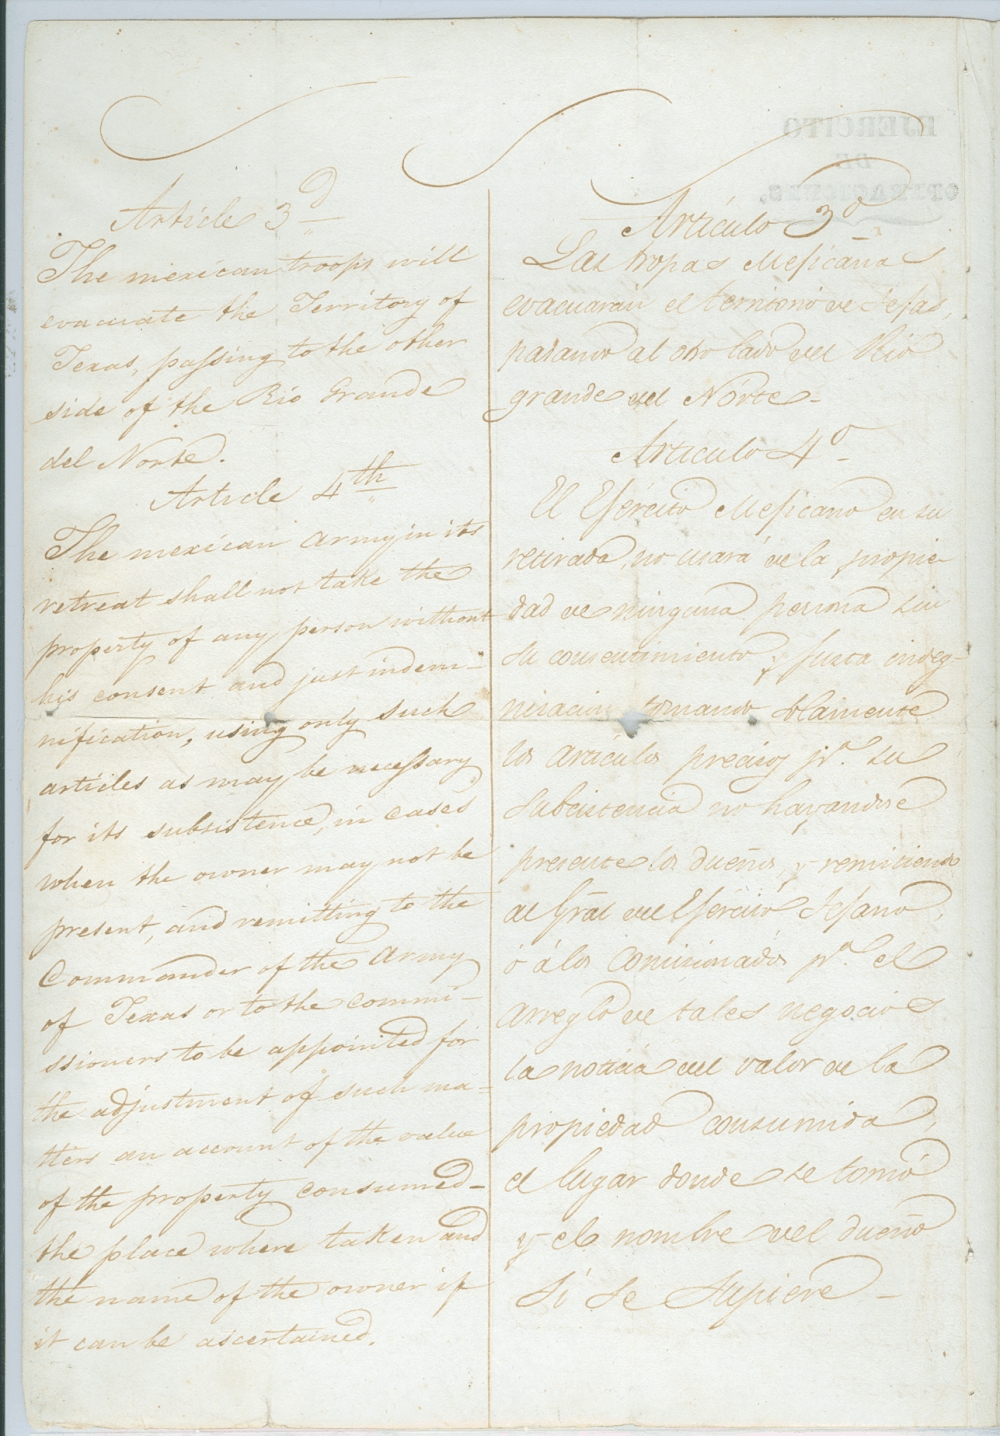 Article 3d
The mexican troops will
evacuate the Territory of
Texas, passing to the other
side of the Rio Grande
del Norte.
Article 4th
The mexican Army in its
retreat shall not take the
property of any person without
his consent and just indem-
nification, using only such
articles as may be necessary
for its subsistence, in cases
when the owner may not be
present, and remitting to the
Commander of the Army
of Texas or to the commi-
ssioners to be appointed for
the adjustment of such ma-
tters an account of the value
of the property consumed-
the place where taken and
the name of the owner if
it can be ascertained.
EJERCITO
DE
OPERACIONES,
Artículo 3º
Las tropas Mejicanas
evacuarán el territorio de Tejas,
pasando al otro lado del Rio
grande del Norte-
Artículo 4º-
El Ejército Mejicano en su
retirada no usará de la propie-
dad de ninguna persona sin
su consentimiento y justa indeg-
nizacion tomando solamente
los articulos precisos pª. su
subcistencia no hayandose
presente los dueños, y remitiendo
al Gral del Ejército Tejano,
ó á los Comicionados pª. el
arreglo de tales negocios
la noticia del valor de la
propiedad consumida,
el lugar donde se tomó
y el nombre del dueño
Si se Supiere-